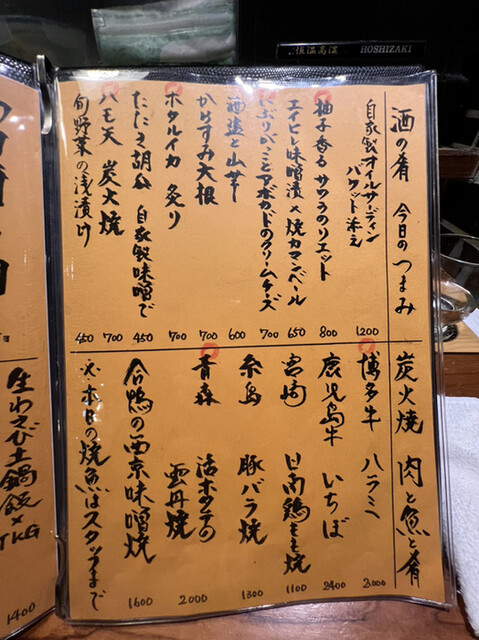 恒温高湿 HOSHIZAKI
酒の肴 今日のつまみ
自家製オイルサーディン
バケット添え 1200
柚子香るサワラのリエット 800
エイヒレ味噌漬×焼カマンベール 650
いぶりがっことアボカドのクリームチーズ 700
酒盗と山芋 600
からすみ大根 700
ホタルイカ 炙り 700
たたき胡瓜 自家製味噌で 450
ハモ天 炭火焼 700
旬野菜の浅漬け 450
炭火焼 肉と魚と肴
博多牛 ハラミ 2000
鹿児島牛 いちぼ 2400
宮崎 日南鶏もも焼 1100
糸島 豚バラ焼 1300
青森 活ホタテの
雲丹焼 2000
合鴨の西京味噌焼 1600
※本日の焼魚はスタッフまで
生わさび土鍋飯×
TKG
1400